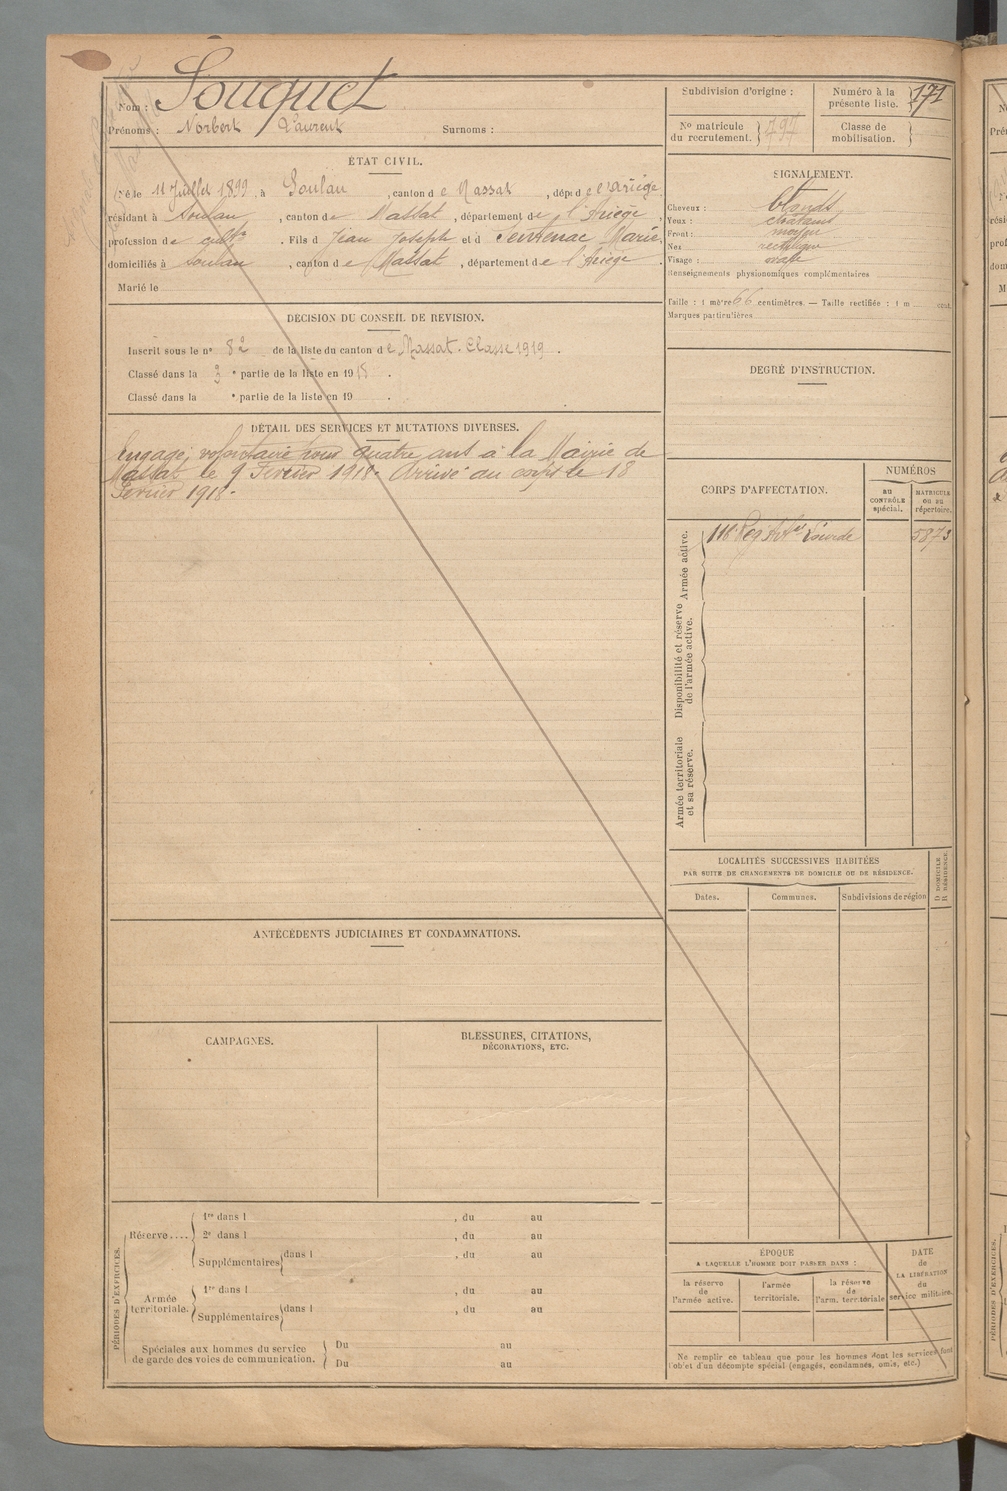 Nom : Souquet
Prénoms : Norbert Laurent Surnoms :
ÉTAT CIVIL.
Né le 11 Juillet 1899, à Soulan, canton de Massat, dépt de l'Ariège,
résidant à Soulan, canton de Massat, département de l'Ariège,
profession de cultr. Fils d Jean Joseph et d Sentenac Marie,
domiciliés à Soulan, canton de Massat, département de l'Ariège.
Marié le
DÉCISION DU CONSEIL DE REVISION.
Inscrit sous le n° 82 de la liste du canton de Massat. Classe 1919.
Classé dans la e partie de la liste en 19
Classé dans la e partie de la liste en 19 .
DÉTAIL DES SERVICES ET MUTATIONS DIVERSES.
Engagé volontaire pour quatre ans à la Mairie de
Massat le 9 Février 1918. Arrivé au corps le 18
Février 1918.
ANTÉCÉDENTS JUDICIAIRES ET CONDAMNATIONS.
CAMPAGNES.
BLESSURES, CITATIONS,
DÉCORATIONS, ETC.
PÉRIODES D'EXERCICES.
Réserve....
1re dans l , du au
2e dans l , du au
Supplémentaires dans l , du au
Armée
territoriale.
1re dans l , du au
Supplémentaires dans l , du au
Spéciales aux hommes du service
de garde des voies de communication.
Du au
Du au
Subdivision d'origine :
Numéro à la
présente liste. 171
No matricule
du recrutement. 797
Classe de
mobilisation.
SIGNALEMENT.
Cheveux : blonds
Yeux : châtains
Front : moyen
Nez : rectiligne
Visage : ovale
Renseignements physionomiques complémentaires
Taille : 1 mètre 66 centimètres. — Taille rectifiée : 1 m cent.
Marques particulières
DEGRÉ D'INSTRUCTION.
CORPS D'AFFECTATION.
NUMÉROS
au
CONTRÔLE
spécial.
MATRICULE
OU AU
répertoire.
Armée active.
118e Reg Artie Lourde 5873
Disponibilité et réserve
de l'armée active.
Armée territoriale
et sa réserve.
LOCALITÉS SUCCESSIVES HABITÉES
PAR SUITE DE CHANGEMENTS DE DOMICILE OU DE RÉSIDENCE.
D DOMICILE
R RÉSIDENCE.
Dates. Communes. Subdivisions de région
ÉPOQUE
A LAQUELLE L'HOMME DOIT PASSER DANS :
la réserve
de
l'armée active.
l'armée
territoriale.
la réserve
de
l'arm. territoriale
DATE
de
LA LIBÉRATION
du
service militaire.
Ne remplir ce tableau que pour les hommes dont les services font
l'objet d'un décompte spécial (engagés, condamnés, omis, etc.)